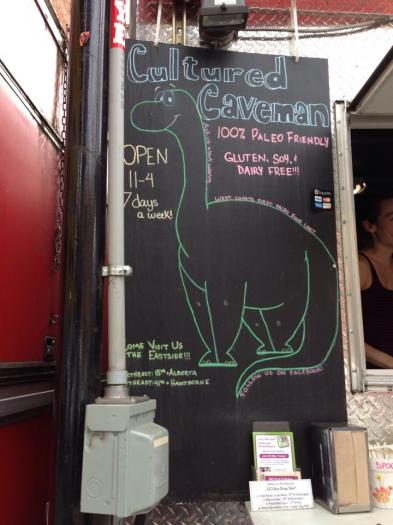 Cultured
Caveman
100% PALEO FRIENDLY
GLUTEN, SOY, &
DAIRY FREE!!!
OPEN
11-4
7 days
a week!
WEST COASTS FIRST PALEO FOOD CART
OME VISIT US
THE EASTSIDE!!!
THEAST: 15TH & ALBERTA
THEAST: 41ST & HAWTHORNE
FOLLOW US ON FACEBOOK!
GO Box Drop Site!
SPOO